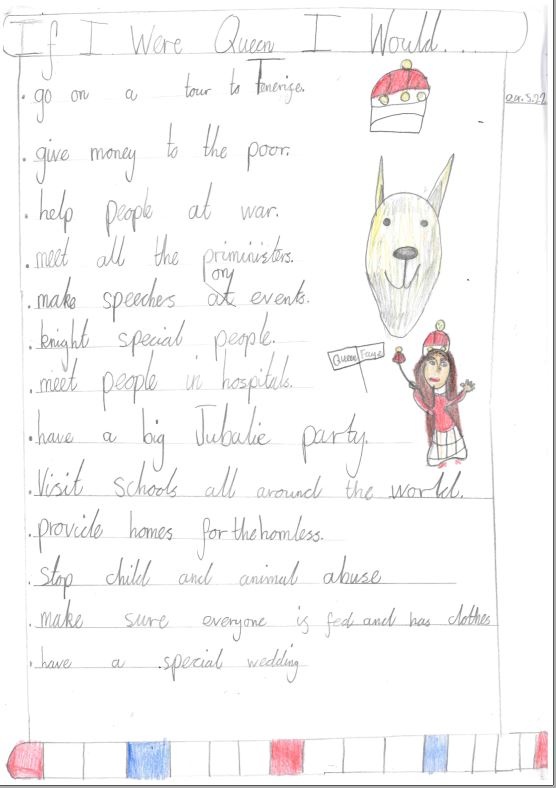 If I Were Queen I Would...
24.5.22
. go on a tour to Tenerige.
. give money to the poor.
. help people at war.
. meet all the priministers.
ony
. make speechers at events.
. knight special people.
Queen Faye
. meet people in hospitals.
. have a big Jubalie party.
. Visit schools all around the world.
. provide homes for the homless.
. Stop child and animal abuse
. make sure everyone is fed and has clothes
. have a special wedding